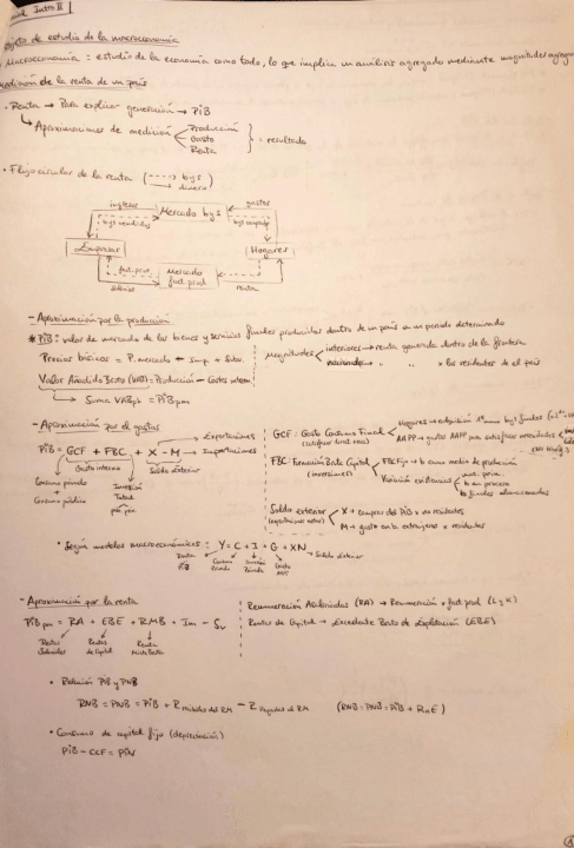 Intro II
objeto de estudio de la macroeconomía
Macroeconomía: estudio de la economía como todo, lo que implica un análisis agregado mediante magnitudes agreg
medición de la renta de un país
· Renta → Para explicar generación → PIB
↳ Aproximaciones de medición < Producción
Gasto } = resultado
Renta
· Flujo circular de la renta (----> bys
→ dinero)
ingresos gastos
Mercado bys
bys vendidos bys comprados
Empresas Hogares
fact. prod. Mercado
fact. prod
salarios renta
- Aproximación por la producción
* PIB: valor de mercado de los bienes y servicios finales producidos dentro de un país en un periodo determinado
Magnitudes < interiores → renta generada dentro de la frontera
nacionales → " " x los residentes de el país
Precios básicos = P. mercado - Imp. + Subv.
Valor Añadido Bruto (VAB) = Producción - Costes interm.
↳ Suma VABpb = PIBpm
- Aproximación por el gasto
PIB = GCF + FBC + X - M → Importaciones
Exportaciones
Gasto interno Saldo Exterior
Consumo privado
+
Consumo público
Inversión
Total
GCF: Gasto Consumo Final < Hogares → adquisición bys finales
AAPP → gastos AAPP para satisfacer necesidades
FBC: Formación Bruta Capital < FBCFijo → b como medio de producción
(inversiones) Variación existencias < mat. prim.
b en proceso
b finales almacenados
Saldo exterior < X → compras del PIB x no residentes
M → gasto en extranjero x residentes
· Según modelos macroeconómicos: Y = C + I + G + XN → Saldo exterior
Renta
PIB
Consumo
Privado
Inversión
Privada
Gasto
- Aproximación por la renta
PIBpm = RA + EBE + RMB + Im - Sv
Rentas
Salariales
Rentas
de Capital
Renta
Mixta Bruta
Remuneración Asalariados (RA) → Remuneración x fact. prod (L y K)
Rentas de Capital → Excedente Bruto de Explotación (EBE)
· Relación PIB y PNB
RNB = PNB = PIB + R recibidas del RM - R pagadas al RM (RNB = PNB = PIB + RnE)
· Consumo de capital fijo (depreciación)
PIB - CCF = PIN